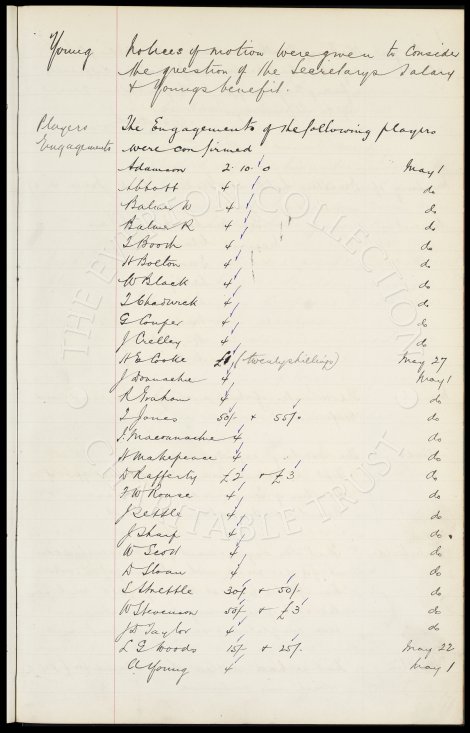 Young Notices of motion were given to Consider
the question of the Secretarys Salary
& Youngs benefit.
Players The Engagements of the following players
Engagements were confirmed
Adamson 2. 10. 0 May 1
Abbott 4 do
Balmer W 4 do
Balmer R 4 do
T Booth 4 do
H Bolton 4 do
W Black 4 do
T Chadwick 4 do
G Couper 4 do
J Crelley 4 do
H E Cooke £1 (twenty shillings) May 27
J Donnachie 4 May 1
R Graham 4 do
T Jones 50/- & 55/- do
J. Maconnachie 4 do
H Makepeace 4 do
D Rafferty £2 & £3 do
F W Rouse 4 do
J Settle 4 do
J Sharp 4 do
W Scott 4 do
D Sloan 4 do
S Strettle 30/- & 50/- do
W Stevenson 50/- & £3 do
J D Taylor 4 do
L G Woods 15/- & 25/- May 22
A Young 4 May 1
THE EVERTON COLLECTION
CHARITABLE TRUST